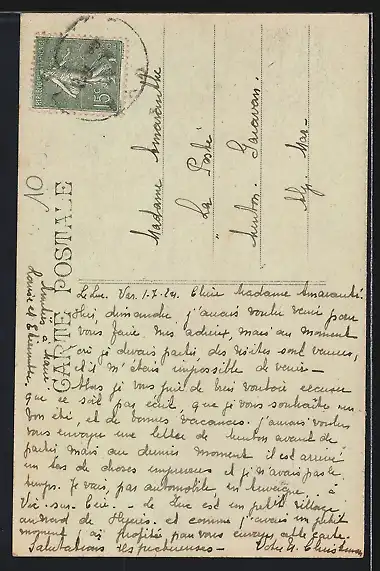 15c
CARTE POSTALE
Madame Amaranthe
La Poste
Menton Garavan.
Alp. Mar-
Le Luc. Var. 1-7-24. Chère Madame Amaranthe
dimanche j'aurais voulu venir pour
vous faire mes adieux, mais au moment
où je devais partir, des visites sont venues,
et il m'était impossible de venir-
Alors je vous prie de bien vouloir excuser
que ce soit par écrit, que je vous souhaite un
bon été, et de bonnes vacances. J'aurais voulu
vous envoyer une lettre de Menton avant de
partir mais au dernier moment il est arrivé
un tas de choses et je n'avais pas le
temps. Je vais, par automobile en Auvergne, à
Vic-sur-Cère. - Le Luc est un petit village
au nord de Hyères. et comme j'avais un petit
moment, ai profité pour vous envoyer cette carte.
Salutations respectueuses - Votre
Amitiés à
Louise et